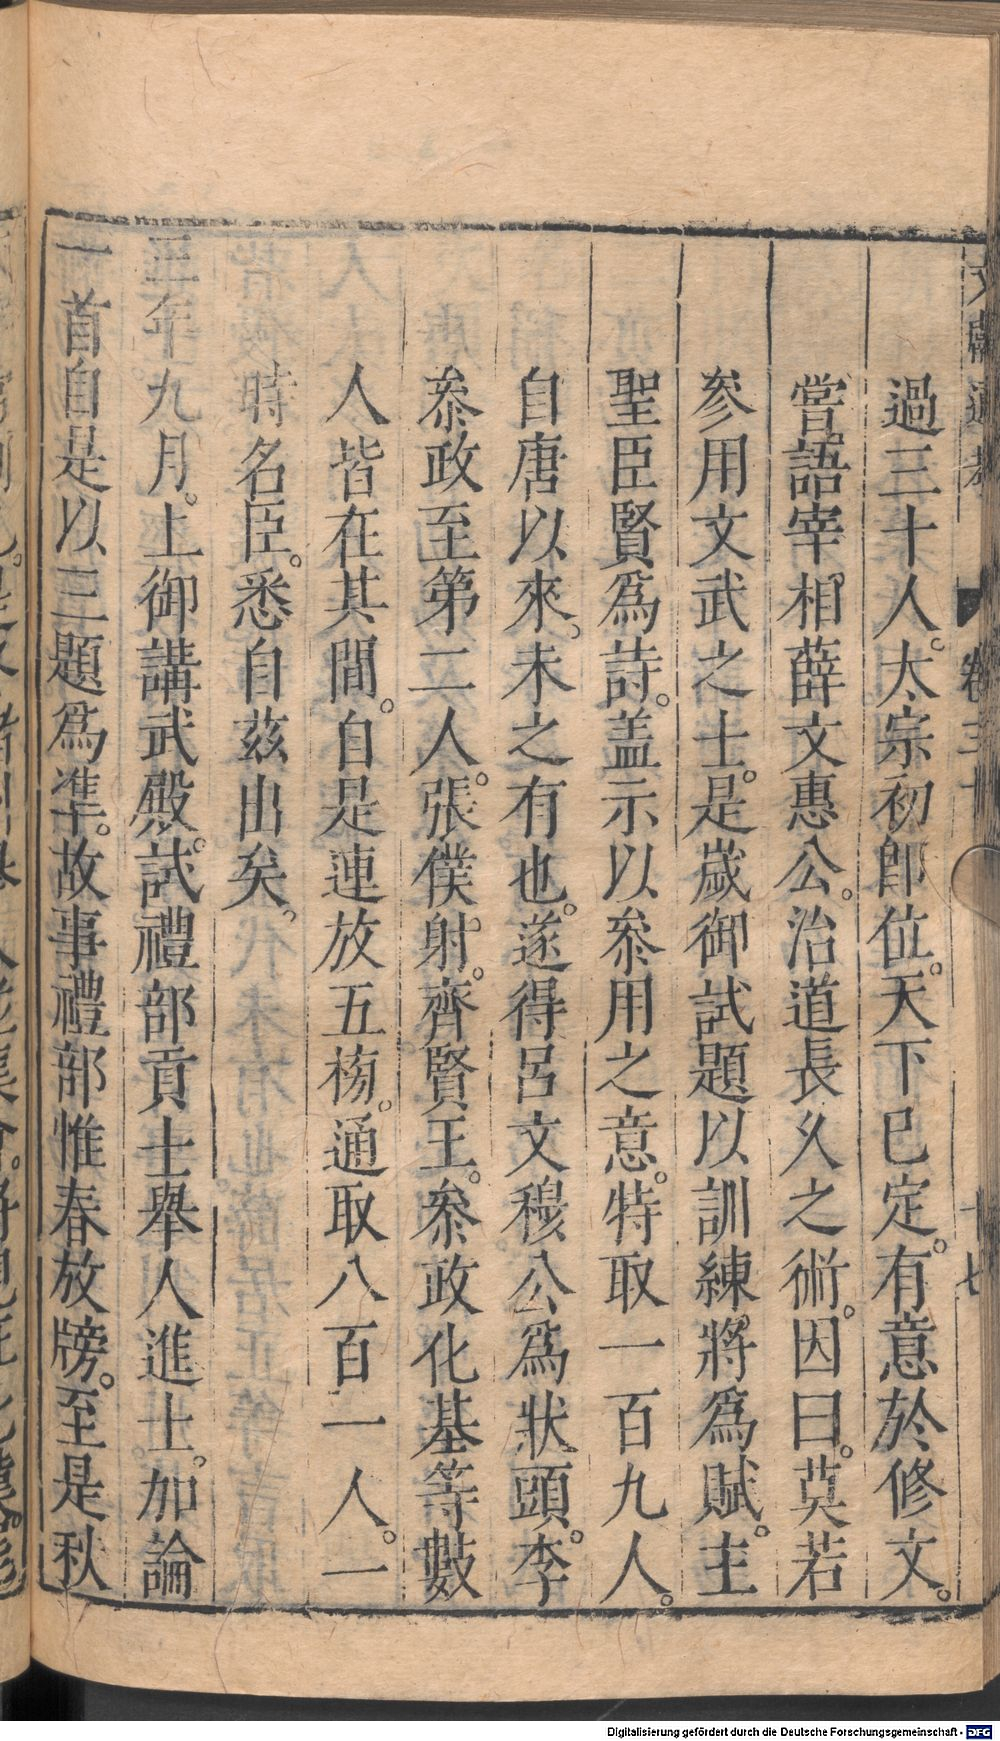 文獻通考 卷三十 十七
過三十人。太宗初卽位。天下已定。有意於修文。
嘗語宰相薛文惠公。治道長久之術。因曰。莫若
參用文武之士。是歲御試題以訓練將爲賦。主
聖臣賢爲詩。盖示以叅用之意。特取一百九人。
自唐以來。未之有也。遂得呂文穆公爲狀頭。李
叅政至第二人。張僕射。齊賢王。叅政化基等數
人皆在其間。自是連放五榜。通取八百一人。一
時名臣。悉自茲出矣。
三年九月。上御講武殿。試禮部貢士舉人進士。加論
一首自是以三題爲準。故事禮部惟春放牓。至是秋
Digitalisierung gefördert durch die Deutsche Forschungsgemeinschaft - DFG